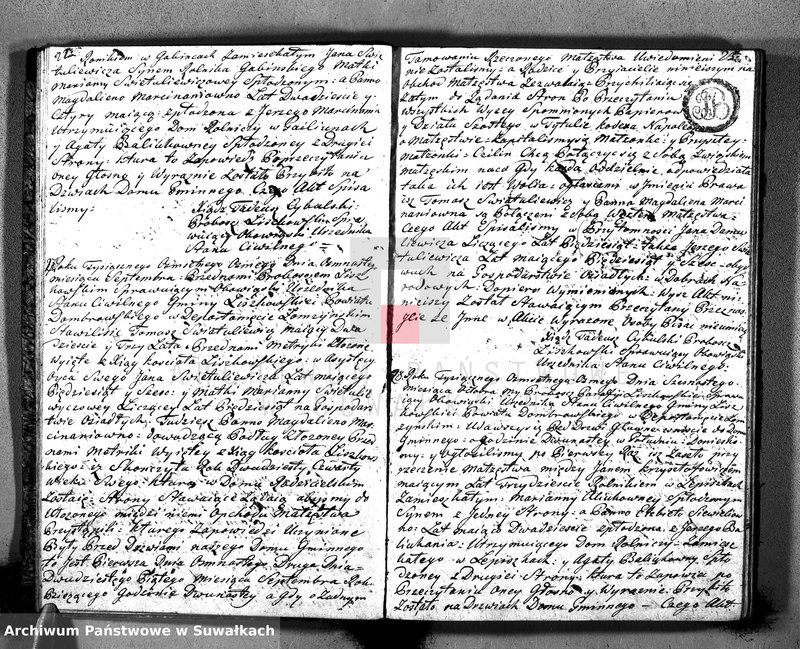 Rolnikiem w Gabincach Zamieszkałym Jana Świ
tulewicza Synem Rolnika Matki
Maryanny Swietuliewiczowey Spłodzonym: a Panno
Magdalieno Marcinaniowno Lat Dwadziescie y
cztyry maiącą spłodzona z Jerzego Marcinania
Utrzymuiącego Dom Rolniczy w
y Agaty Spłodzoney z Drugiey
Strony: ktura to Zapowiedz Poprzeczytaniu
oney Głosno y Wyraznie Została Przybita na
Dzwiach Domu Gminnego. Czego Akt Spisa
lismy:
Xiądz Tadeusz Cybulski:
Proboszcz Liszkowski Spra
wuiący Obowiązki Urzednika
Stanu Cywilnego
Roku Tysiącznego Osmsetnego Osmego Dnia Osmnastego
miesiąca Septembra: Przednami Proboszczem Lisz
kowskim Sprawuiącym Obowiązki Urzednika
Stanu Cywilnego Gminy Liszkowskiey Powiatu
Dombrowskiego w Departamęcie Łomzynskim
Stawili sie Tomasz Swietuliewicz maiący Dwa
dziescie y Trzy Lata: Przednami Metryki złozone
Wyięte z Xiąg kosciota Liszkowskiego: w Asystęcy
oyca Swego Jana Swietuliewicza Lat maiącego
Pięćdziesiąt y Szesc: y Matki Marianny Swietulie
wyczowey Liczącey Lat Pięćdziesiąt na Gospodar
stwie Osiadłych: Tudziesz Panno Magdalieno Mar
cinaniowno: dowadzącą Podług złozoney Przed
nami Metriki Wyiętey z Xiąg kosciota Liszkows
kiego: iz Skonczyła Rok Dwudziesty Czwarty
Wieku Swego: ktura w Domu Rodzicielskim
Zostaie: Strony Stawaiące Ządaią abysmy do
Ułozonego miedzi niemi Obchodu Małzęstwa
Przystąpili: kturego Zapowiedzi Uczyniane
Były Przed Dzwiami naszego Domu Gminnego
to Jest Pierwsza Dnia Osmnastego: Druga Dnia
Dwudziestego Piątego Miesiąca Septembra Roku
Biezącego Godzinie Dwunastey a gdy o Zadnym
Tamowaniu Rzeczonego Małzęstwa Uwiedomieni
nie Zostalismy: a Rodzice y Przyiaciele ninieyszym na
obchod Małzęstwa Zezwalaią Przychiliaiąc sie
Zatym do Ządania Stron Po Przeczytaniu
Wszystkich Wyzey Spomnionych Papierow
y Działu Szostego w Tytulie Kodexu Napoleona
o Małzęstwie: Zapitalismy sie Małzonka: y Przyszłey
Małzonki: Czilim Chcą Połączyc sie z Sobą Związkiem
Małzęskim naco Gdy kazda Oddzielnie odpowiedziała
taka ich iest Wolia: ogłaszam w Jmieniu Prawa
isz Tomasz Swietuliewicz y Panna Magdaliena Marci
naniowna są Połączeni z Sobą Węzłem Małzęstwa:
Czego Akt Spisalismy w Przytomnosci Jana Swietu
liewicza Liczącego Lat Pięćdziesiąt: takze Jerzego Swie
tuliewicza Lat maiącego Pięćdziesiąt y Szesc: oby
wuch na Gospodarstwie Osiadłych w Dobrach Na
rodowych Dopiero Wymienionych: Wysz Akt ni
nieyszy Został Stawaiącym Przeczytany Przezna
Jnne w Akcie Wyrazone Osoby Pisac nieumieią
Xiądz Tadeusz Cybulski Proboszcz
Liszkowski Sprawuiący Obowiązki
Urzednika Stanu Cywilnego.
Roku Tysiącznego Osmsetnego Osmego Dnia Szesnastego
miesiąca Octobra my Proboszcz Parafii Liszkowskiey Sprawu
iący Obowiązki Urzednika Stanu Cywilnego Gminy Lisz
kowskiey Powiatu Dombrowskiego w Departamęcie Łom
zynskim: Udawszysię Przed Drzwi Głowne weyscia do Domu
Gminnego: o Godzinie Dwunastey w Południe: Doniesli
smy: y Ogłosilismy po Pierwszy Raz isz Zaszło przy
rzeczenie Małzęstwa między Janem
maiącym Lat Trzydziescie Rolnikiem w Lepiszkach
Zamieszkałym: Marianny Spłodzonym
Synem z Jedney Strony: a Panno Elzbieto
Lat maiąca Dwadziescie spłodzona z Jerzego
Utrzymuiącego Dom Rolniczy: Zamiesz
kałego w Lepiszkach: y Agaty Spło
dzoney z Drugiey Strony: ktura to Zapowie po
Przeczytaniu Oney Głosno y Wyraznie Przybita
Została na Drzwiach Domu Gminnego — Czego Akt:
Archiwum Państwowe w Suwałkach